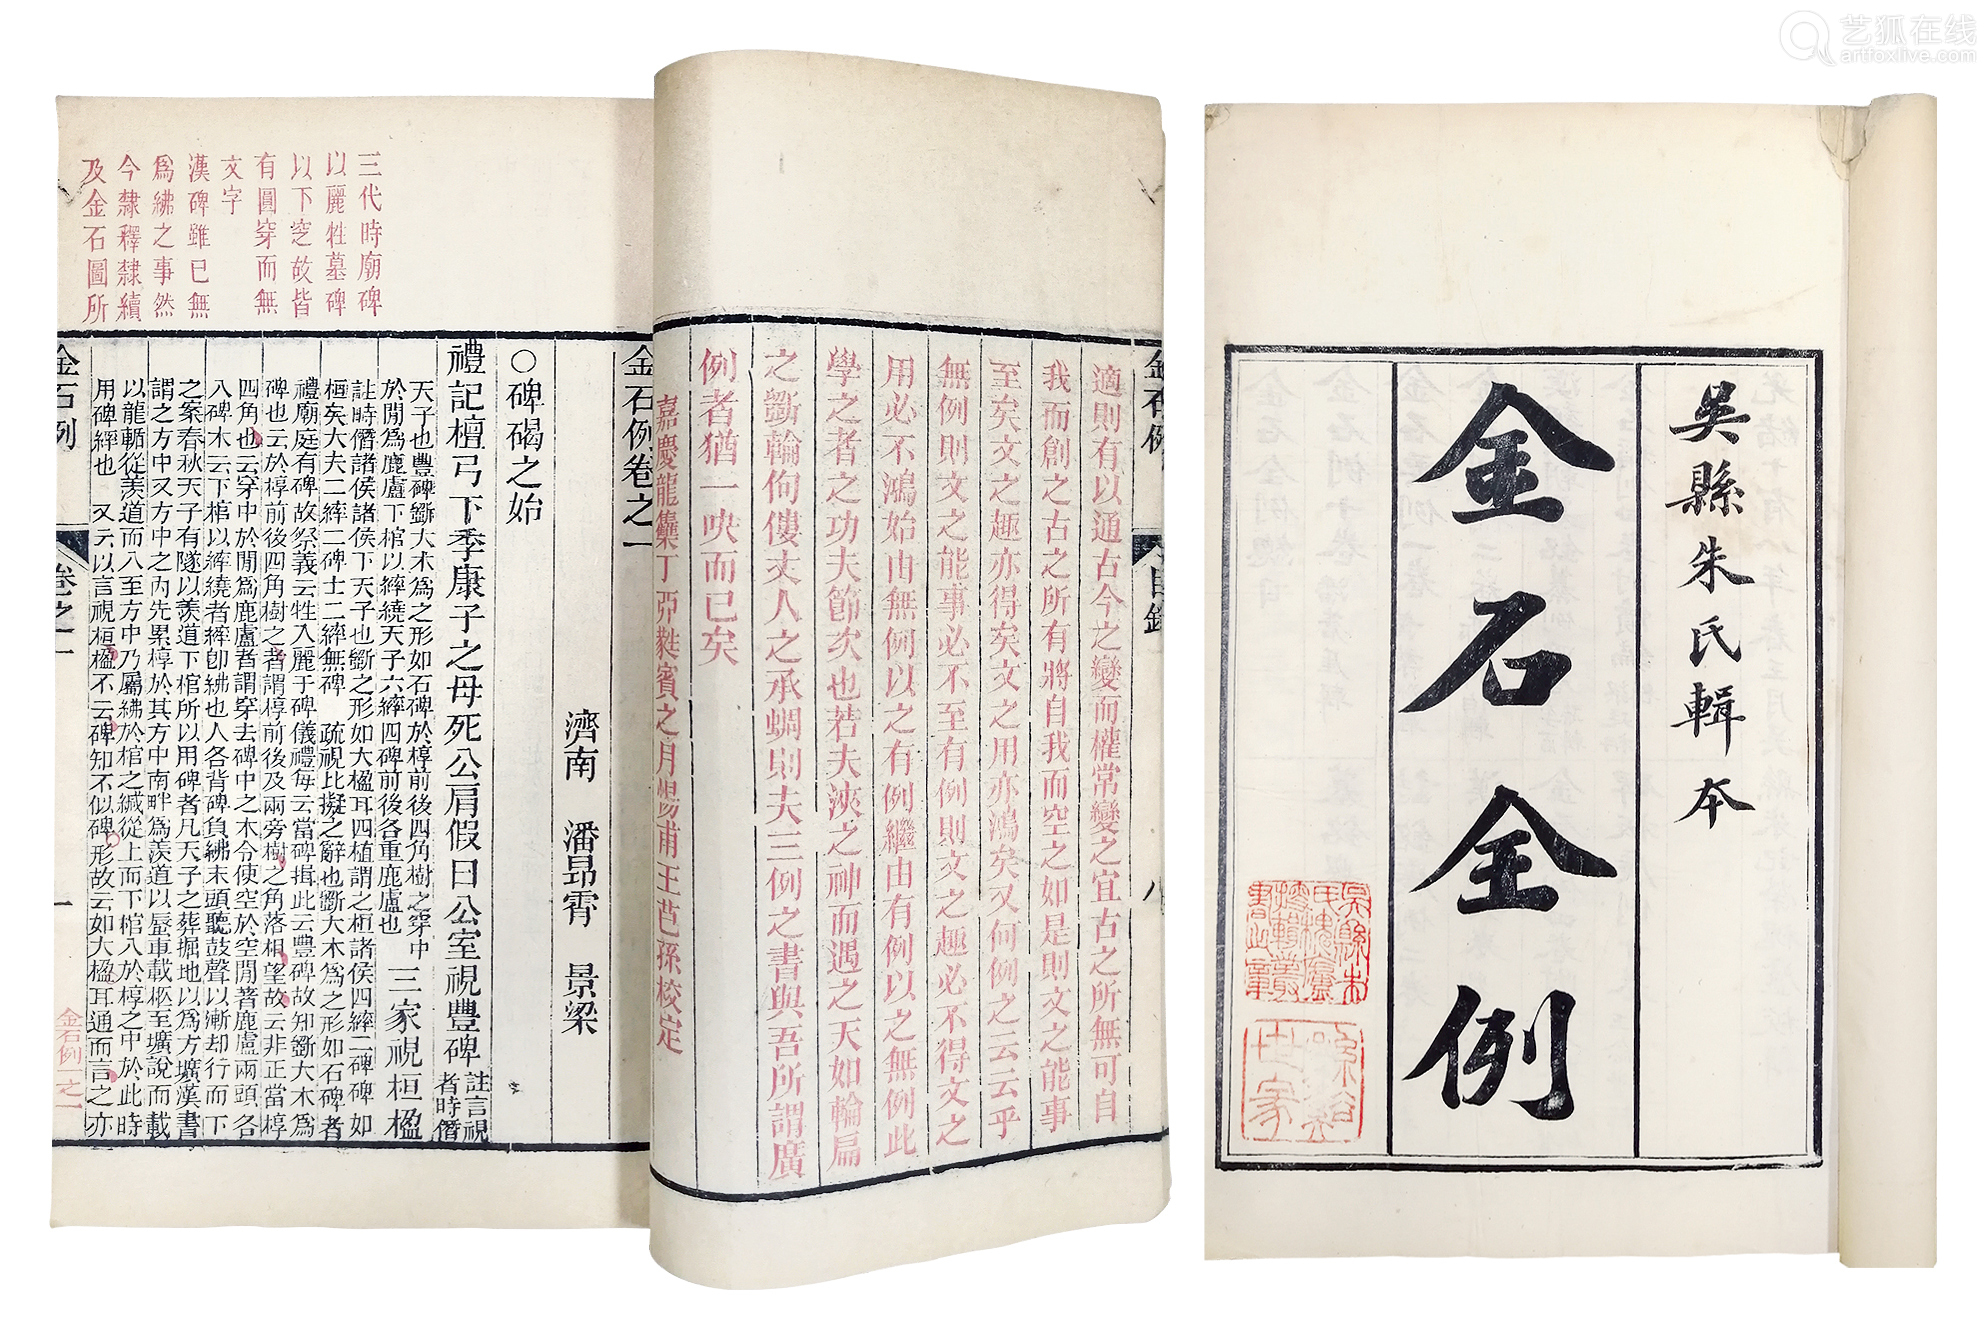 艺狐在线
artfoxlive.com
吳縣朱氏輯本
金石全例
金石例
目錄
八
適則有以通古今之變而權常變之宜古之所無可自
我而創之古之所有將自我而空之如是則文之能事
至矣文之趣亦得矣文之用亦鴻矣又何例之云云乎
無例則文之能事必不至有例則文之趣必不得文之
用必不鴻始由無例以之有例繼由有例以之無例此
學之者之功夫節次也若夫浹之神而遇之天如輪扁
之斵輪佝僂丈人之承蜩則夫三例之書與吾所謂廣
例者猶一吷而已矣
嘉慶龍集丁卯蕤賓之月惕甫王芑孫校定
三代時廟碑
以麗牲墓碑
以下窆故皆
有圓穿而無
文字
漢碑雖已無
爲紼之事然
今隸釋隸續
及金石圖所
金石例卷之一
濟南 潘昻霄 景梁
○碑碣之始
禮記檀弓下季康子之母死公肩假曰公室視豐碑註言視者時僭
天子也豐碑斵大木爲之形如石碑於椁前後四角樹之穿中
於閒爲鹿盧下棺以繂繞天子六繂四碑前後各重鹿盧也 三家視桓楹
註時僭諸侯諸侯下天子也斵之形如大楹耳四植謂之桓諸侯四繂二碑碑如
桓矣大夫二繂二碑士二繂無碑 疏視比擬之辭也斵大木爲之形如石碑者
禮廟庭有碑故祭義云牲入麗于碑儀禮每云當碑揖此云豐碑故知斵大木爲
碑也云於椁前後四角樹之者謂椁前後及兩旁樹之角落相望故云非正當椁
四角也云穿中於閒爲鹿盧者謂穿去碑中之木令使空於空閒著鹿盧兩頭各
入碑木云下棺以繂繞者繂卽紼也人各背碑負紼末頭聽鼓聲以漸却行而下
之案春秋天子有隧以羨道下棺所以用碑者凡天子之葬掘地以爲方壙漢書
謂之方中又方中之內先累椁於其方中南畔爲羨道以蜃車載柩至壙說而載
以龍輴從羨道而入至方中乃屬紼於棺之緘從上而下棺入於椁之中於此時
用碑繂也 又云以言視桓楹不云碑知不似碑形故云如大楹耳通而言之亦
金石例
卷之一
一
金石例一之一